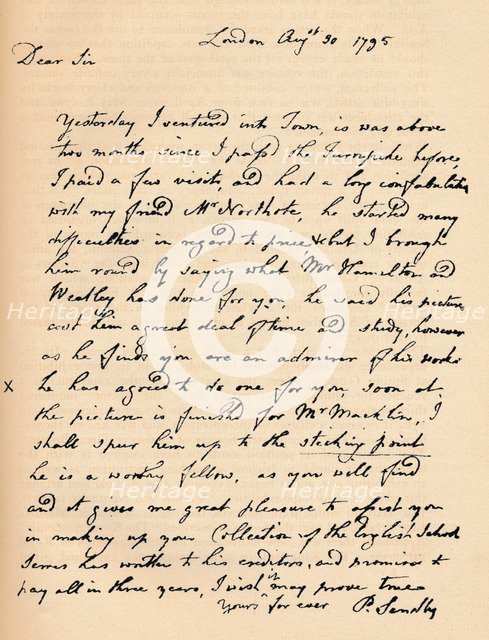 London Augst 30 1795
Dear Sir
Yesterday I ventured into Town, is was above
two months since I pass'd the Turnpike before,
I paid a few visits, and had a long confabulation
with my friend Mr Northcote, he started many
difficulties in regard to price & but I brough
him round by saying what Mr Hamilton and
Weatley has done for you, he said his picture
cost him a great deal of time and study, however
as he finds you are an admirer of his works
x he has agreed to do one for you, soon as
the picture is finished for Mr Macklin, I
shall spur him up to the sticking point
he is a worthy fellow, as you will find
and it gives me great pleasure to assist you
in making up your Collection of the English School
Serres has written to his creditors, and promises to
pay all in three years, I wish it may prove true
Yours for ever P. Sandby
Heritage
Heritage
Heritage
Heritage
Heritage
Heritage